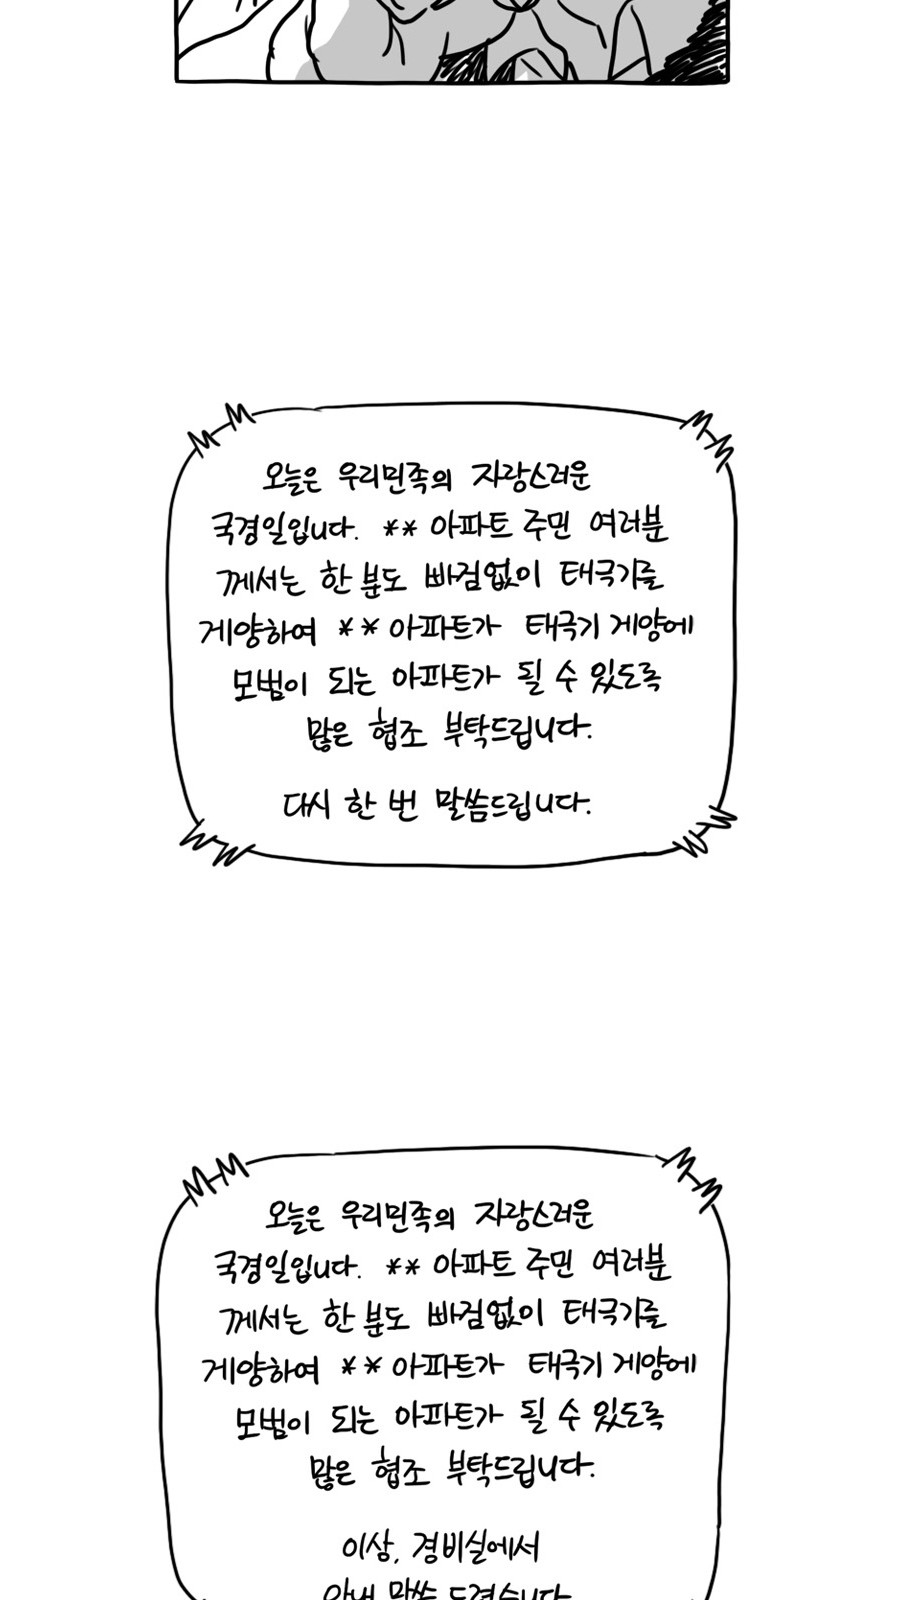 오늘은 우리민족의 자랑스러운
국경일입니다. ** 아파트 주민 여러분
께서는 한 분도 빠짐없이 태극기를
게양하여 ** 아파트가 태극기 게양에
모범이 되는 아파트가 될 수 있도록
많은 협조 부탁드립니다.
다시 한 번 말씀드립니다.
오늘은 우리민족의 자랑스러운
국경일입니다. ** 아파트 주민 여러분
께서는 한 분도 빠짐없이 태극기를
게양하여 ** 아파트가 태극기 게양에
모범이 되는 아파트가 될 수 있도록
많은 협조 부탁드립니다.
이상, 경비실에서
안내 말씀 드렸습니다